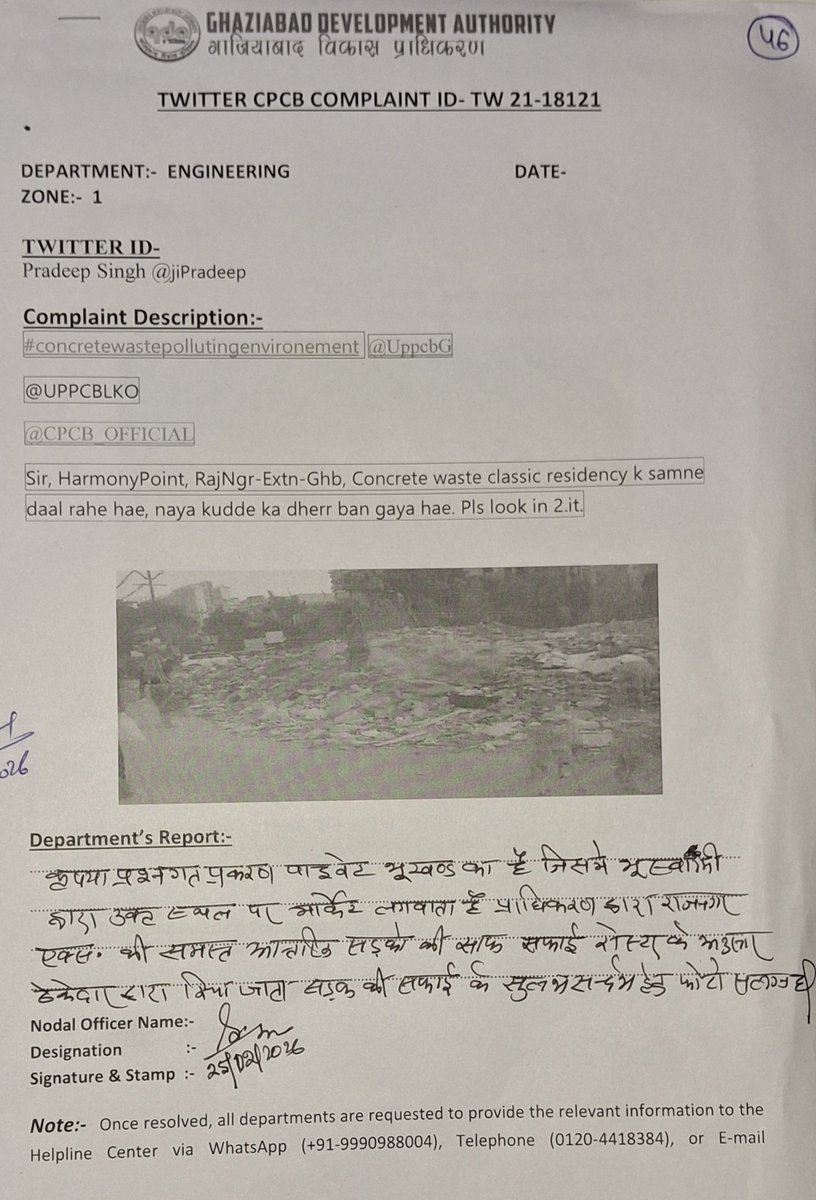 GHAZIABAD DEVELOPMENT AUTHORITY
गाजियाबाद विकास प्राधिकरण
46
TWITTER CPCB COMPLAINT ID- TW 21-18121
DEPARTMENT:- ENGINEERING DATE-
ZONE:- 1
TWITTER ID-
Pradeep Singh @jiPradeep
Complaint Description:-
#concretewastepollutingenvironement @UppcbG
@UPPCBLKO
@CPCB_OFFICIAL
Sir, HarmonyPoint, RajNgr-Extn-Ghb, Concrete waste classic residency k samne
daal rahe hae, naya kudde ka dherr ban gaya hae. Pls look in 2.it.
Department's Report:-
कृपया प्रश्नगत प्रकरण प्राइवेट भूखण्ड का है जिसमे भूस्वामी
द्वारा उक्त स्थल पर मार्केट लगवाता है प्राधिकरण द्वारा राजनगर
एक्स. की समस्त आन्तरिक सड़को की साफ सफाई रोस्टर के अनुसार
ठेकेदार द्वारा किया जाता सड़क की सफाई के सुलभ सन्दर्भ हेतु फोटो संलग्न है
Nodal Officer Name:-
Designation :-
Signature & Stamp :- 25/02/2026
Note:- Once resolved, all departments are requested to provide the relevant information to the
Helpline Center via WhatsApp (+91-9990988004), Telephone (0120-4418384), or E-mail